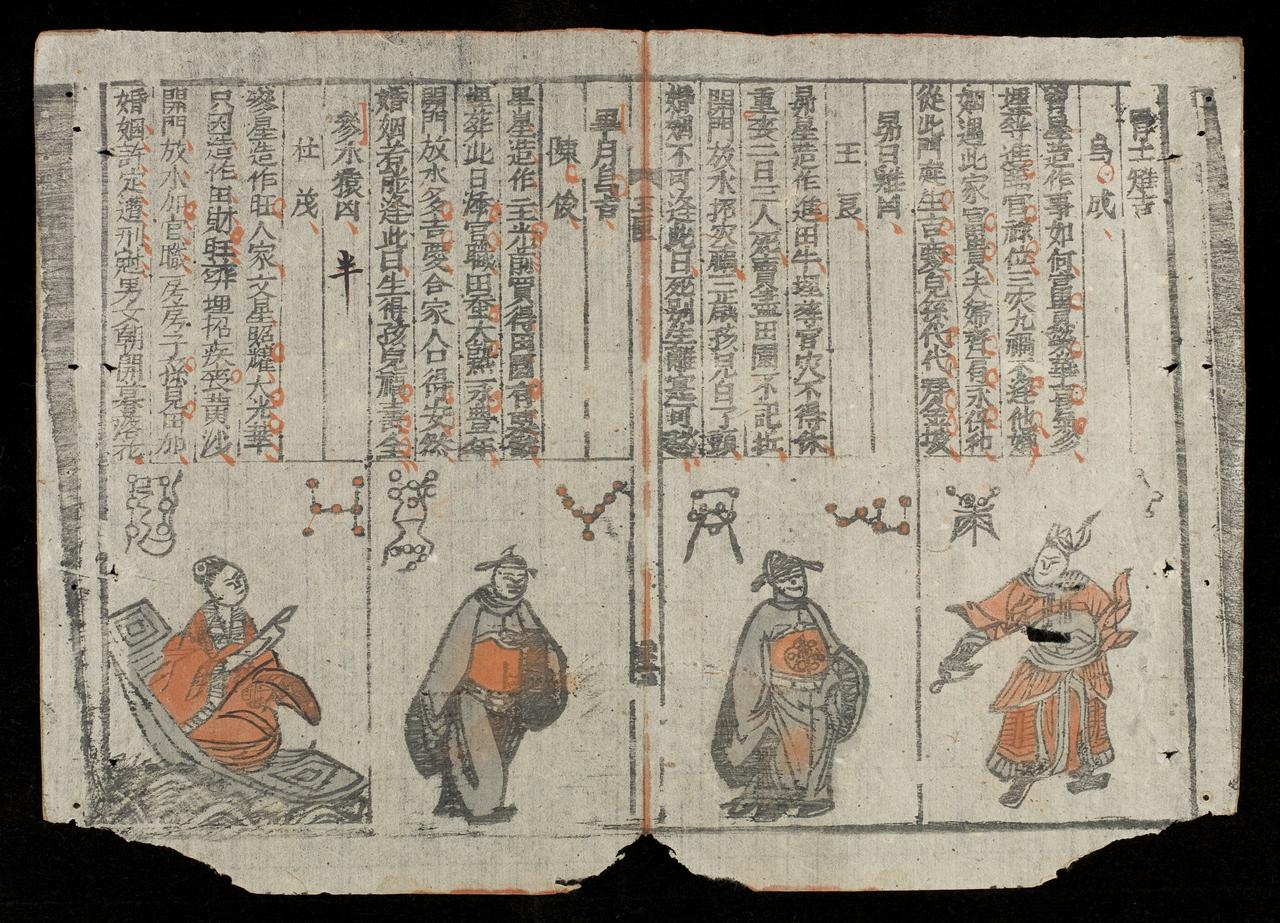 胃土雉吉
烏成
胃星造作事如何富貴榮華喜氣多
埋葬進臨官祿位三灾九禍不逢他婚
姻遇此家富貴夫婦齊眉永保和
從此門庭生吉慶兒孫代代拜金坡
昴日雞凶
王良
昴星造作進田牛埋葬官灾不得休
重喪二日三人死賣盡田園不記
開門放水招灾禍三歲孩兒白了頭
婚姻不可逢此日死別生離寔可愁
畢月烏吉
陳俊
畢星造作主光前買得田園有
埋葬此日添官職田蚕大熟永豊年
開門放水多吉慶合家人口得安然
婚姻若能逢此日生得孩兒福壽全
參水猿凶
半
杜茂
參星造作旺人家文星照耀大光華
只因造作田財旺葬埋招疾喪黃沙
開門放水加官職房房子孫見田加
婚姻許定遭刑尅男女朝開暮落花